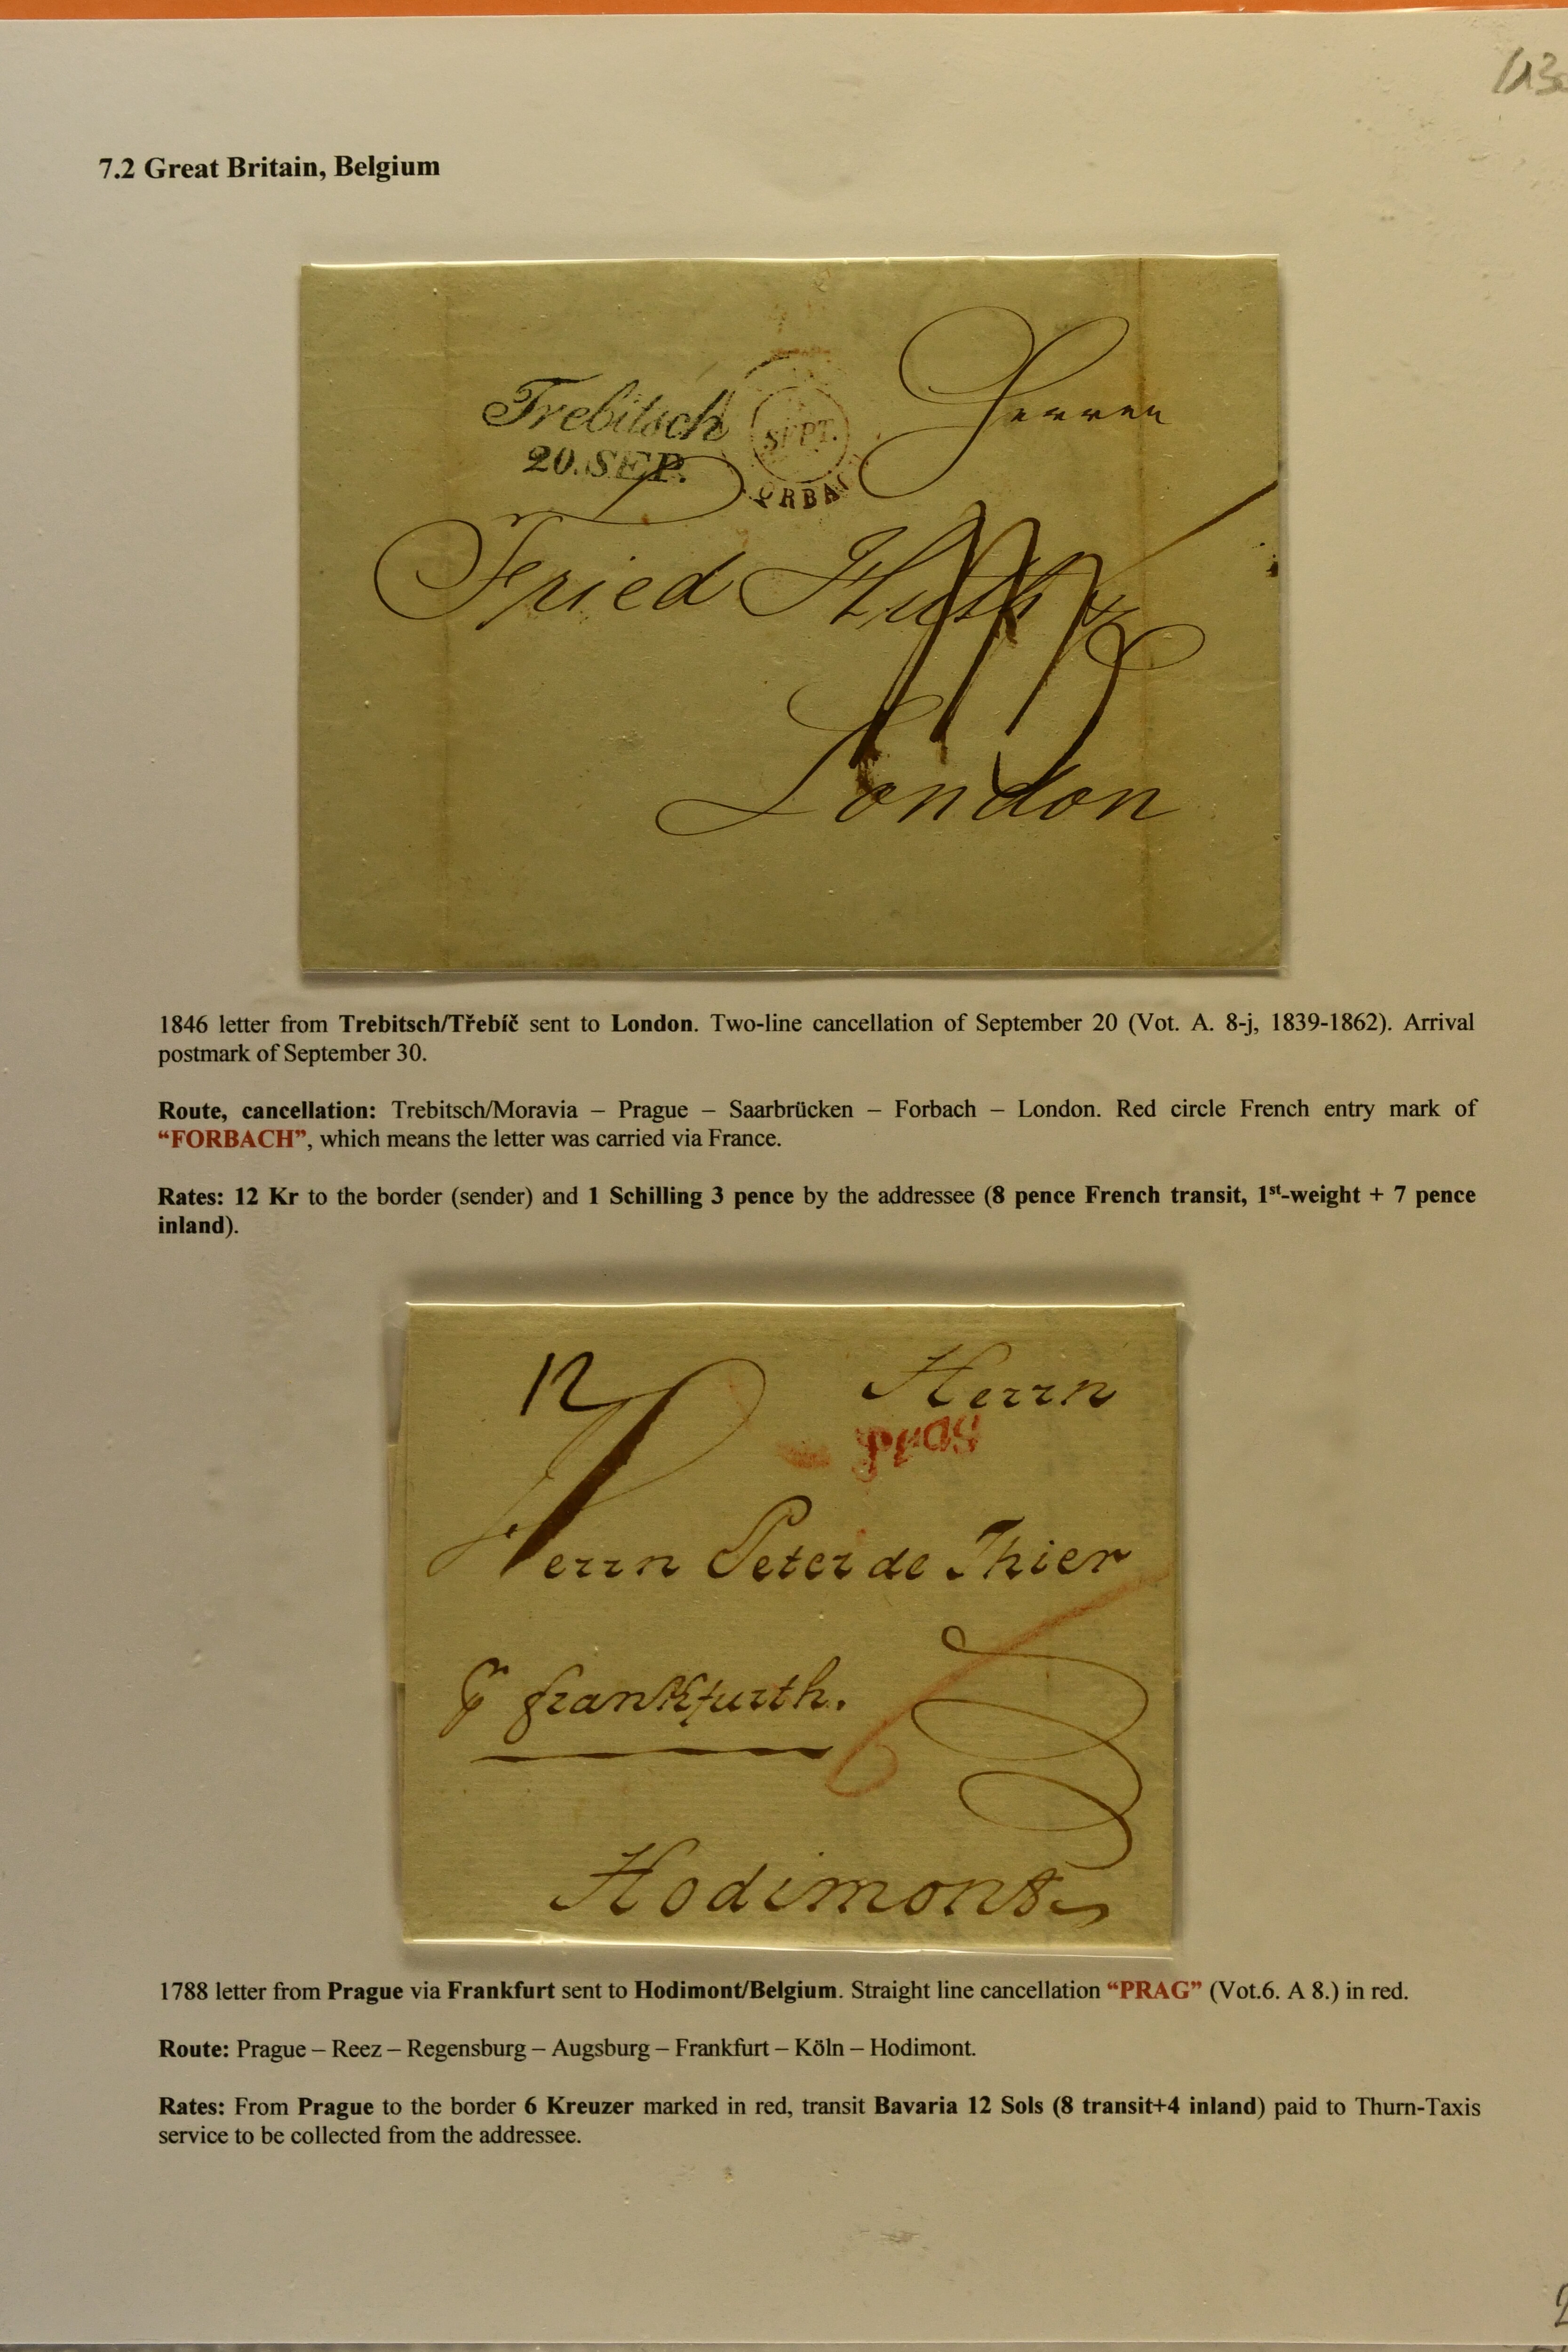 7.2 Great Britain, Belgium
Trebitsch
20. SEP.
SEPT.
ORBAC
Herren
Fried Huth &
London
1846 letter from Trebitsch/Třebíč sent to London. Two-line cancellation of September 20 (Vot. A. 8-j, 1839-1862). Arrival
postmark of September 30.
Route, cancellation: Trebitsch/Moravia – Prague – Saarbrücken – Forbach – London. Red circle French entry mark of
“FORBACH”, which means the letter was carried via France.
Rates: 12 Kr to the border (sender) and 1 Schilling 3 pence by the addressee (8 pence French transit, 1st-weight + 7 pence
inland).
12
Herrn
PRAG
Herrn Peter de Thier
frankfurth.
6
Hodimont
1788 letter from Prague via Frankfurt sent to Hodimont/Belgium. Straight line cancellation “PRAG” (Vot.6. A 8.) in red.
Route: Prague – Reez – Regensburg – Augsburg – Frankfurt – Köln – Hodimont.
Rates: From Prague to the border 6 Kreuzer marked in red, transit Bavaria 12 Sols (8 transit+4 inland) paid to Thurn-Taxis
service to be collected from the addressee.